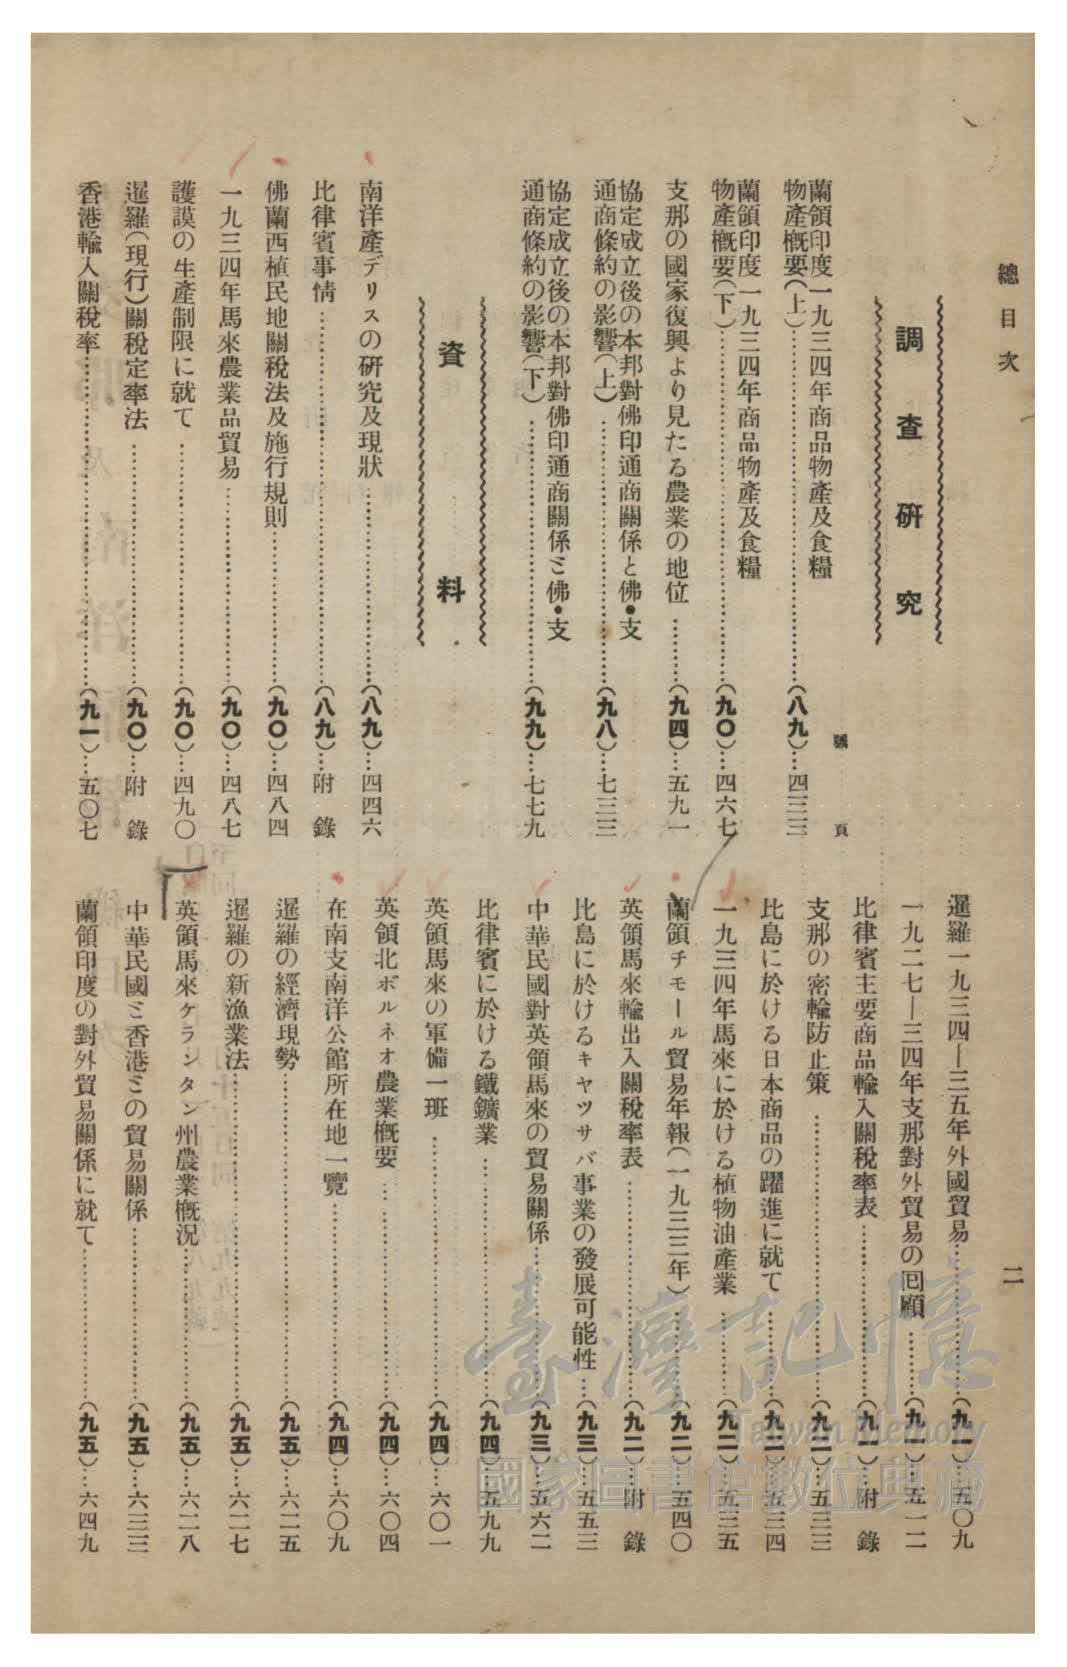 總目次
二
調查研究
號 頁
蘭領印度一九三四年商品物產及食糧
物產槪要(上)……(八九)…四三三
蘭領印度一九三四年商品物產及食糧
物產槪要(下)……(九〇)…四六七
支那の國家復興より見たる農業の地位……(九四)…五九一
協定成立後の本邦對佛印通商關係と佛•支
通商條約の影響(上)……(九八)…七三三
協定成立後の本邦對佛印通商關係ミ佛•支
通商條約の影響(下)……(九九)…七七九
資料
南洋產デリスの研究及現狀……(八九)…四四六
比律賓事情……(八九)…附錄
佛蘭西植民地關稅法及施行規則……(九〇)…四八四
一九三四年馬來農業品貿易……(九〇)…四八七
護謨の生產制限に就て……(九〇)…四九〇
暹羅(現行)關稅定率法……(九〇)…附錄
香港輸入關稅率……(九一)…五〇七
暹羅一九三四—三五年外國貿易……(九一)…五〇九
一九二七—三四年支那對外貿易の囘顧……(九一)…五一二
比律賓主要商品輸入關稅率表……(九一)…附錄
支那の密輸防止策……(九二)…五三三
比島に於ける日本商品の躍進に就て……(九二)…五三四
一九三四年馬來に於ける植物油產業……(九二)…五三五
蘭領チモール貿易年報(一九三三年)……(九二)…五四〇
英領馬來輸出入關稅率表……(九二)…附錄
比島に於けるキヤツサバ事業の發展可能性…(九三)…五五三
中華民國對英領馬來の貿易關係……(九三)…五六二
比律賓に於ける鐵鑛業……(九四)…五九九
英領馬來の軍備一班……(九四)…六〇一
英領北ボルネオ農業槪要……(九四)…六〇四
在南支南洋公館所在地一覽……(九四)…六〇九
暹羅の經濟現勢……(九五)…六二五
暹羅の新漁業法……(九五)…六二七
英領馬來ケランタン州農業槪況……(九五)…六二八
中華民國ミ香港ミの貿易關係……(九五)…六三三
蘭領印度の對外貿易關係に就て……(九五)…六四九
臺灣記憶
Taiwan Memory
國家圖書館數位典藏